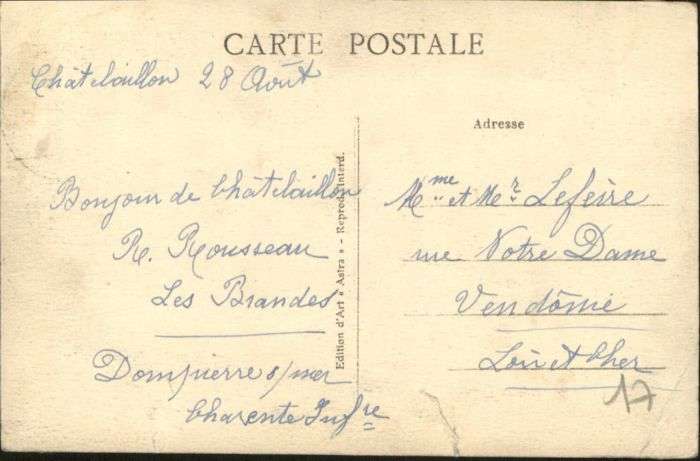 CARTE POSTALE
Châtelaillon 28 Août
Bonjour de Châtelaillon
R. Rousseau
Les Brandes
Dompierre s/mer
Charente Infre
Edition d'Art « Astra » - Reprod. Interd.
Adresse
Mme et Mr Lefèvre
rue Notre Dame
Vendôme
Loir et Cher
17